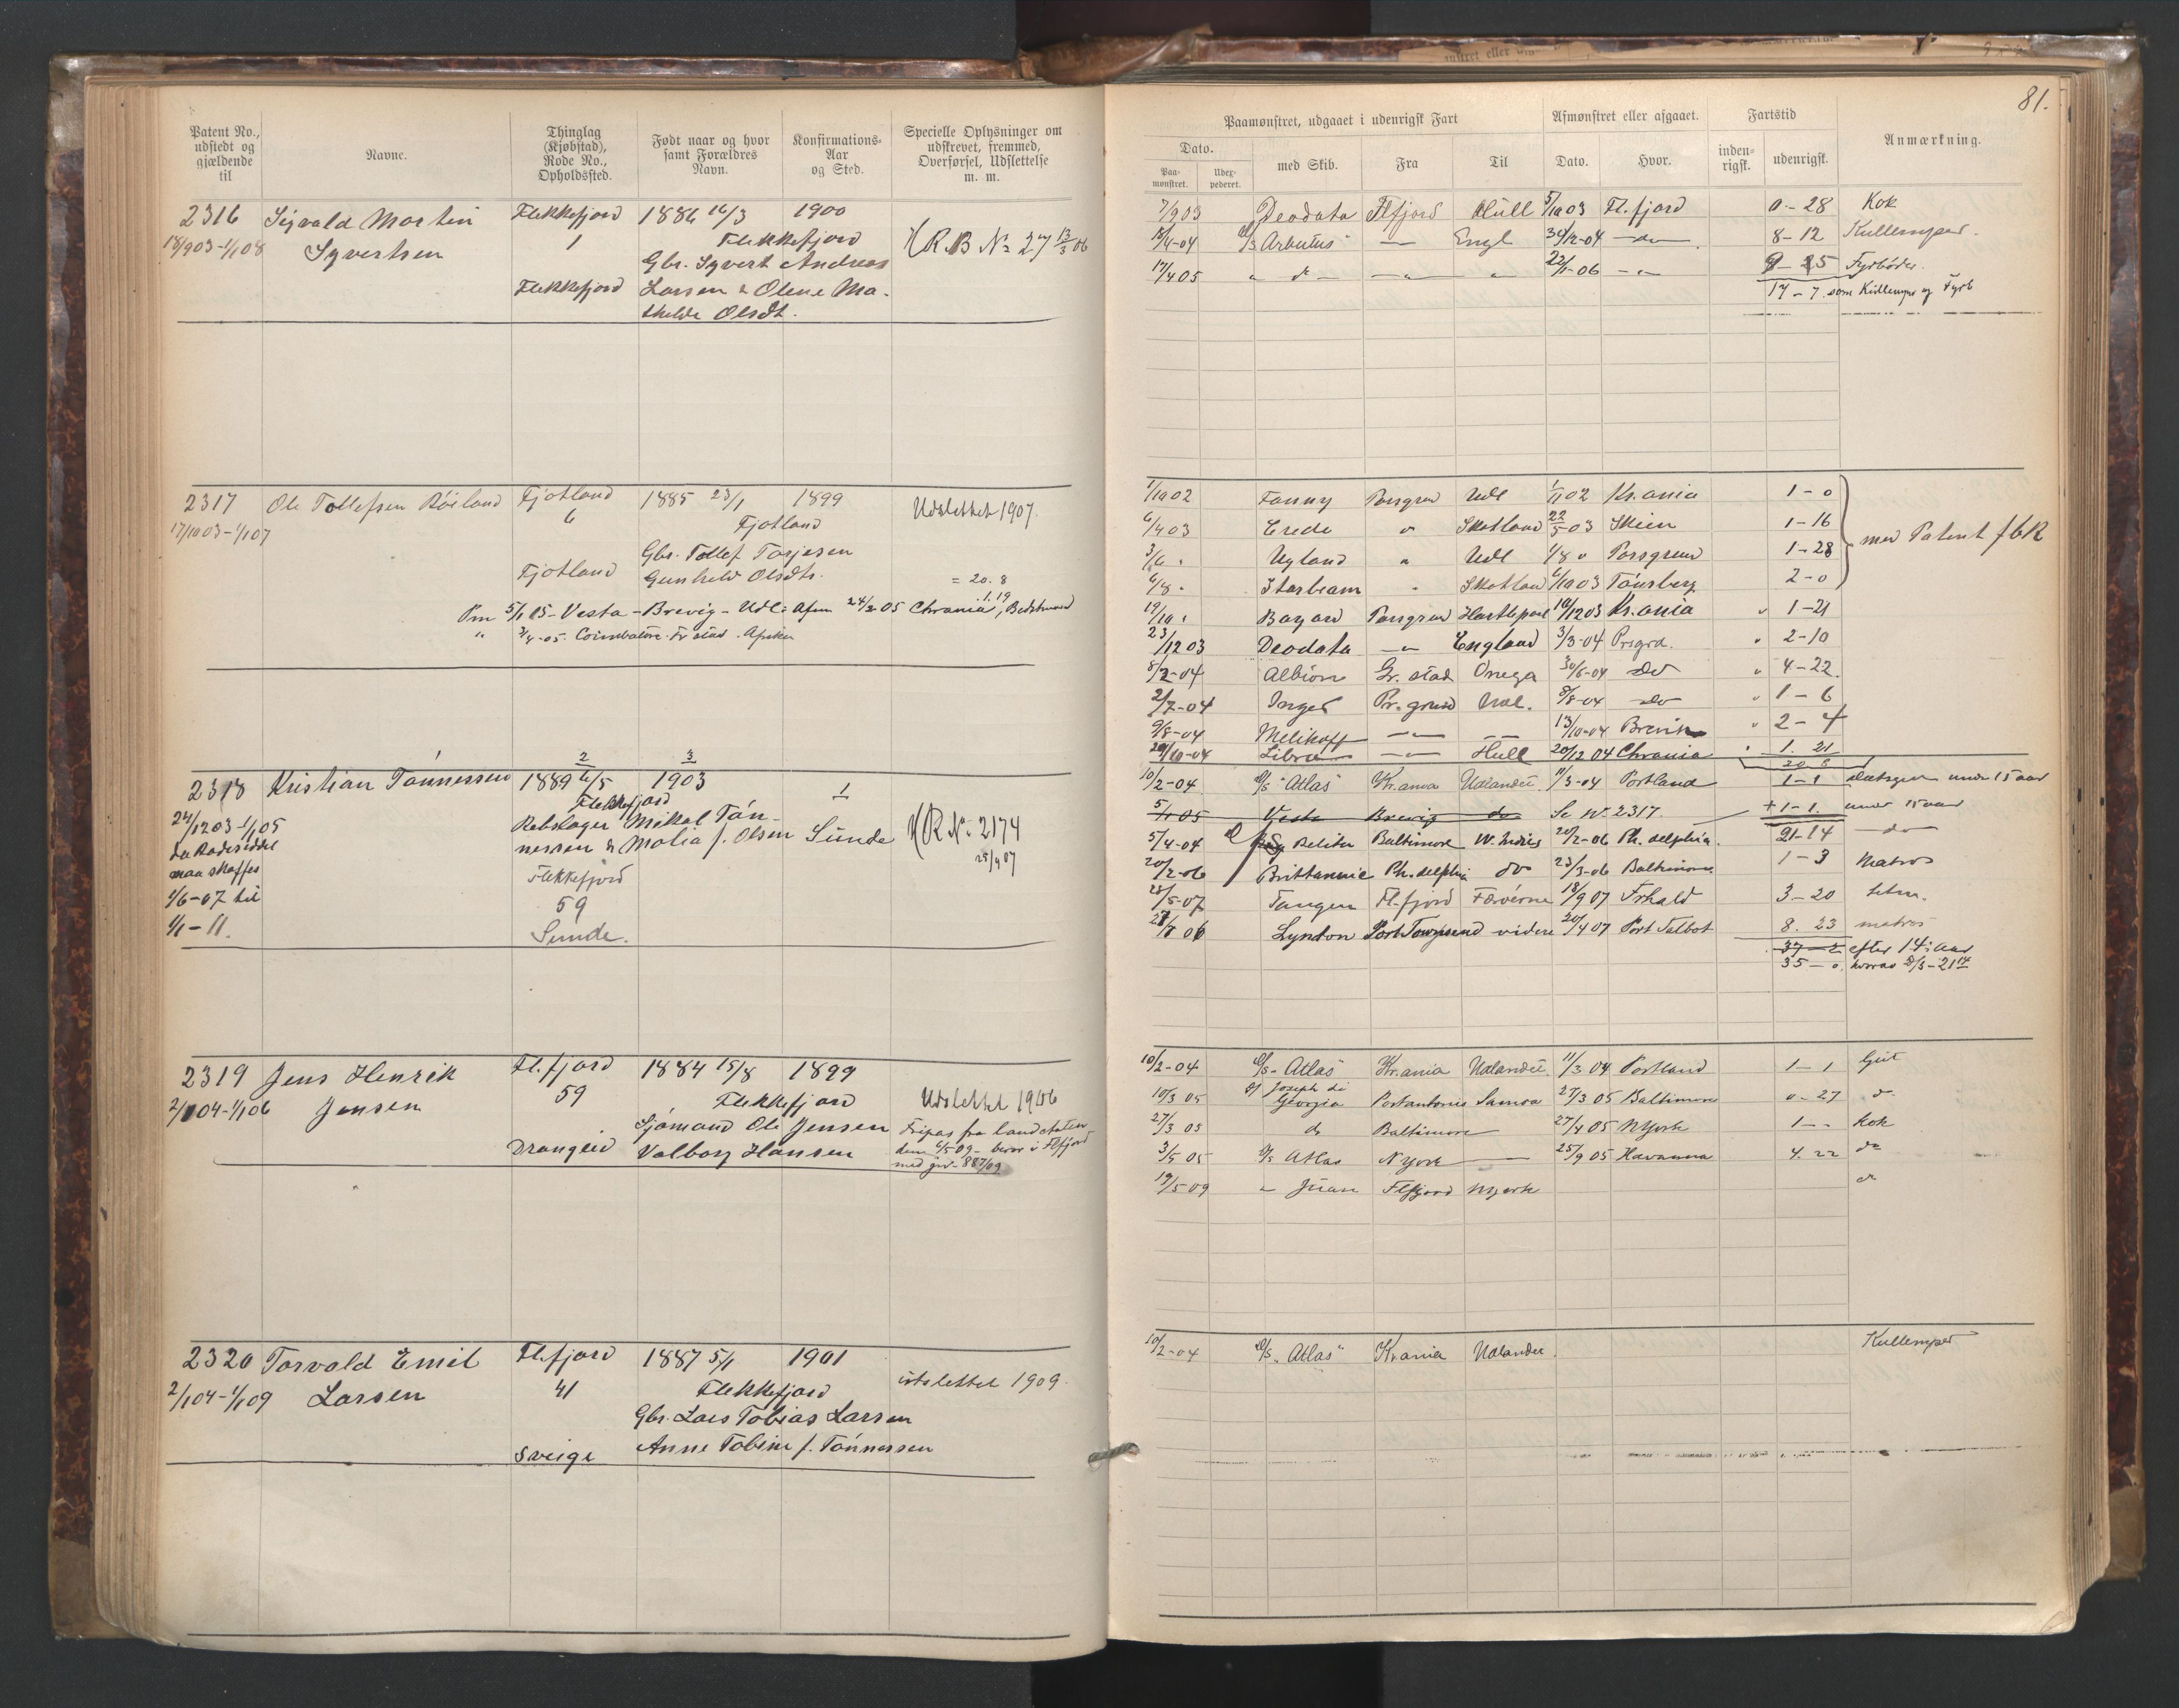 81.
Patent No., udstedt og gjældende til
Navne.
Thinglag (Kjøbstad), Rode No., Opholdssted.
Født naar og hvor samt Forældres Navn.
Konfirmations-Aar og Sted.
Specielle Oplysninger om udskrevet, fremmed, Overførsel, Udslettelse m. m.
Paamønstret, udgaaet i udenrigsk Fart
Afmønstret eller afgaaet.
Fartstid
Anmærkning.
Dato.
Paa-mønstret.
Udex-pederet.
med Skib.
Fra
Til
Dato.
Hvor.
inden-rigsk.
udenrigsk.
2316 Sigvald Martin Flekkefjord 1886 16/3 1900
18/9 03 - 1/1 08 Syvertsen 1 Flekkefjord
Gbr. Syvert Andreas
Flekkefjord Larsen & Olene Ma-
thilde Olsdt.
7/9 03 Deodata Flfjord Hull 5/10 03 Fl.fjord 0-28 Kok
Arbutus Engl 8-12 Kullemper.
17/4 05 9-25 Fyrbøder.
17-7. som Kullemper og Fyrb
2317 Ole Tollefsen Röiland Fjotland 1885 23/1 1899 Udslettet 1907.
17/10 03 - 1/1 07 6 Fjotland
Gbr. Tollef Tarjesen
Fjotland Gunhild Olsdtr. = 20. 8
Pm 5/1 05 - Vesta - Brevig - Udl: Afm 24/2 05 Chrania, 1.19 Bedstmand
" 3/4-05. Coimbatore. Fr stad. Afrika
1/10 02 Fanny Porsgrd Udl 1/11 02 Kr.ania 1-0
6/4 03 Crede " Skotland 22/5 03 Skien 1-16 med Patent f 6R
3/6 " Ugland " Udl 1/8 " Porsgrund 1-28
6/8 " Skotland 6/10 03 Tönsberg 2-0
19/10 " Bayard Porsgrund Hartlepool 10/12 03 Kr.ania " 1-21
23/12 03 Deodata England 3/3-04 Prsgrd. " 2-10
8/2-04 Albion Gr. stad Onega 30/6-04 do " 4-22.
2/7-04 Inger Pr. grund Udl. 8/8-04 do " 1-6
9/8-04 Melikoff 13/10-04 Brevik " 2-4
29/10-04 Libra Hull 20/12 04 Chrania " 1. 21
20 8
2 3
2318 Kristian Tönnessen 1889 6/5 1903 1
24/12 03 - 1/1 05 Flekkefjord
Rebslager Mikal Tön-
nessen & Malia f. Olsen Sunde
maa skaffes Flekkefjord
1/6-07 til 59
1/1-11. Sunde.
R No 2174
25/9 07
10/2-04 D/S "Atlas" Kr.ania Udlandet 11/3-04 Portland 1-1 Dæksgut under 15 aar
5/1 05 Vesta Brevig do Se No 2317. + 1-1. under 15 aar
5/4-04 Baltimore W. Indies 20/2-06 Ph. delphia. 21-14 do
20/2-06 Brittannic Ph. delphia do 23/3-06 Baltimore 1-3 Matros
28/5-07 Tangen Fl.fjord Færöerne 18/9 07 Frhald 3-20 Letm.
Lyndon Port Townsend videre 20/4 07 Port Talbot 8. 23 matros
37-2 efter 14: aar
35-0.
2319 Jens Henrik Fl.fjord 1884 15/8 1899
2/1 04 - 1/1 06 Jensen 59 Flekkefjord Udslettet 1906
Sjömand Ole Jensen Fripas fra landetaten
Drangeid Valborg Hansen
10/2-04 D/S "Atlas" Kr.ania Udlandet 11/3 04 Portland 1-1 Gut
10/3 05 Joseph di Georgia Samoa 27/3 05 Baltimore 0-27 do
27/3 05 do Baltimore 27/4 05 NYork 1-- kok
3/5 05 D/S Atlas NYork 25/9 05 Havanna 4. 22 do
19/5 09 " Juan Flfjord NYork do
2320 Torvald Emil Fl.fjord 1887 5/1 1901
2/1 04 - 1/1 09 Larsen 41 Flekkefjord utslettet 1909.
Gbr. Lars Tobias Larsen
Sverige Anne Tobine f. Tönnessen
10/2-04 D/S "Atlas" Kr.ania Udlandet Kullemper